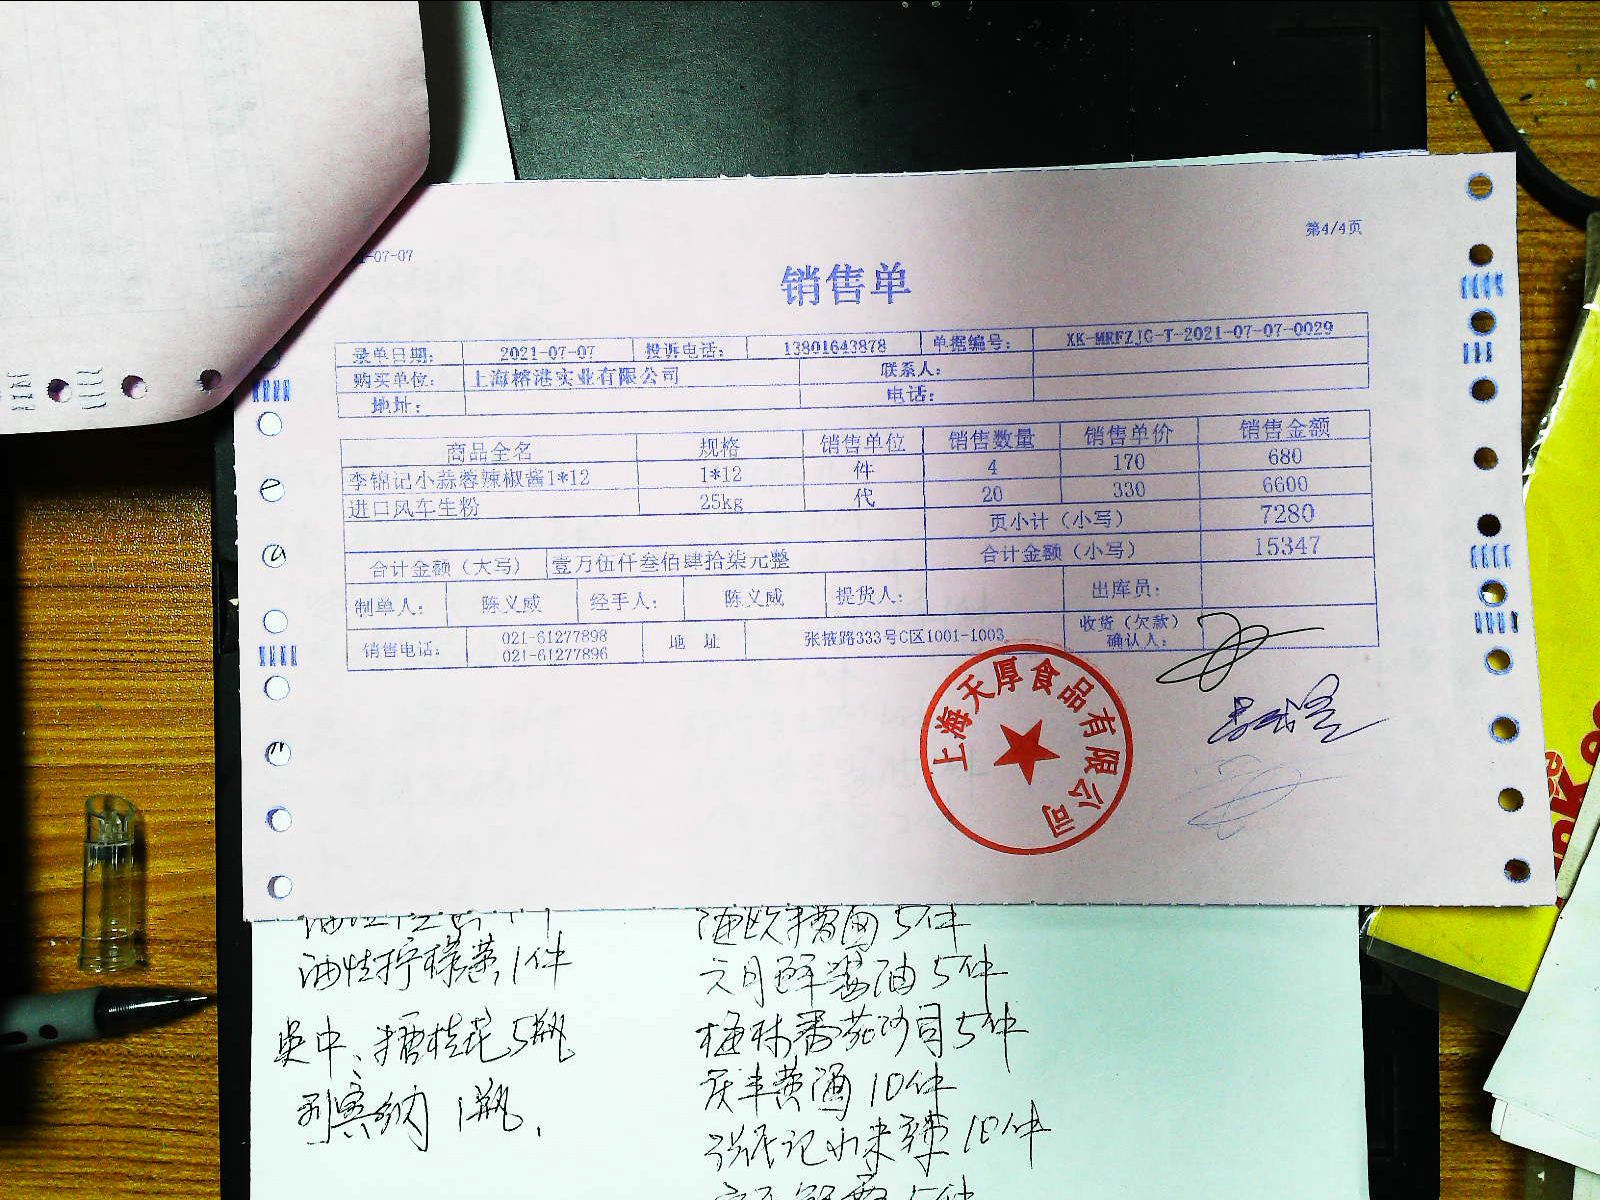 第4/4页
-07-07
销售单
录单日期: 2021-07-07 投诉电话: 13801643878 单据编号: XK-MRFZJC-T-2021-07-07-0029
购买单位: 上海榕港实业有限公司 联系人:
地址: 电话:
商品全名 规格 销售单位 销售数量 销售单价 销售金额
李锦记小蒜蓉辣椒酱1*12 1*12 件 4 170 680
进口风车生粉 25kg 代 20 330 6600
页小计（小写） 7280
合计金额（大写） 壹万伍仟叁佰肆拾柒元整 合计金额（小写） 15347
制单人: 陈义威 经手人: 陈义威 提货人: 出库员:
销售电话: 021-61277898 地 址 张掖路333号C区1001-1003 收货（欠款）
021-61277896 确认人:
上海天厚食品有限公司
5件
油性柠檬黄 1件
六月鲜酱油 5件
吴中、糖桂花 5瓶
梅林番茄沙司 5件
黄酒 10件
1瓶.
10件